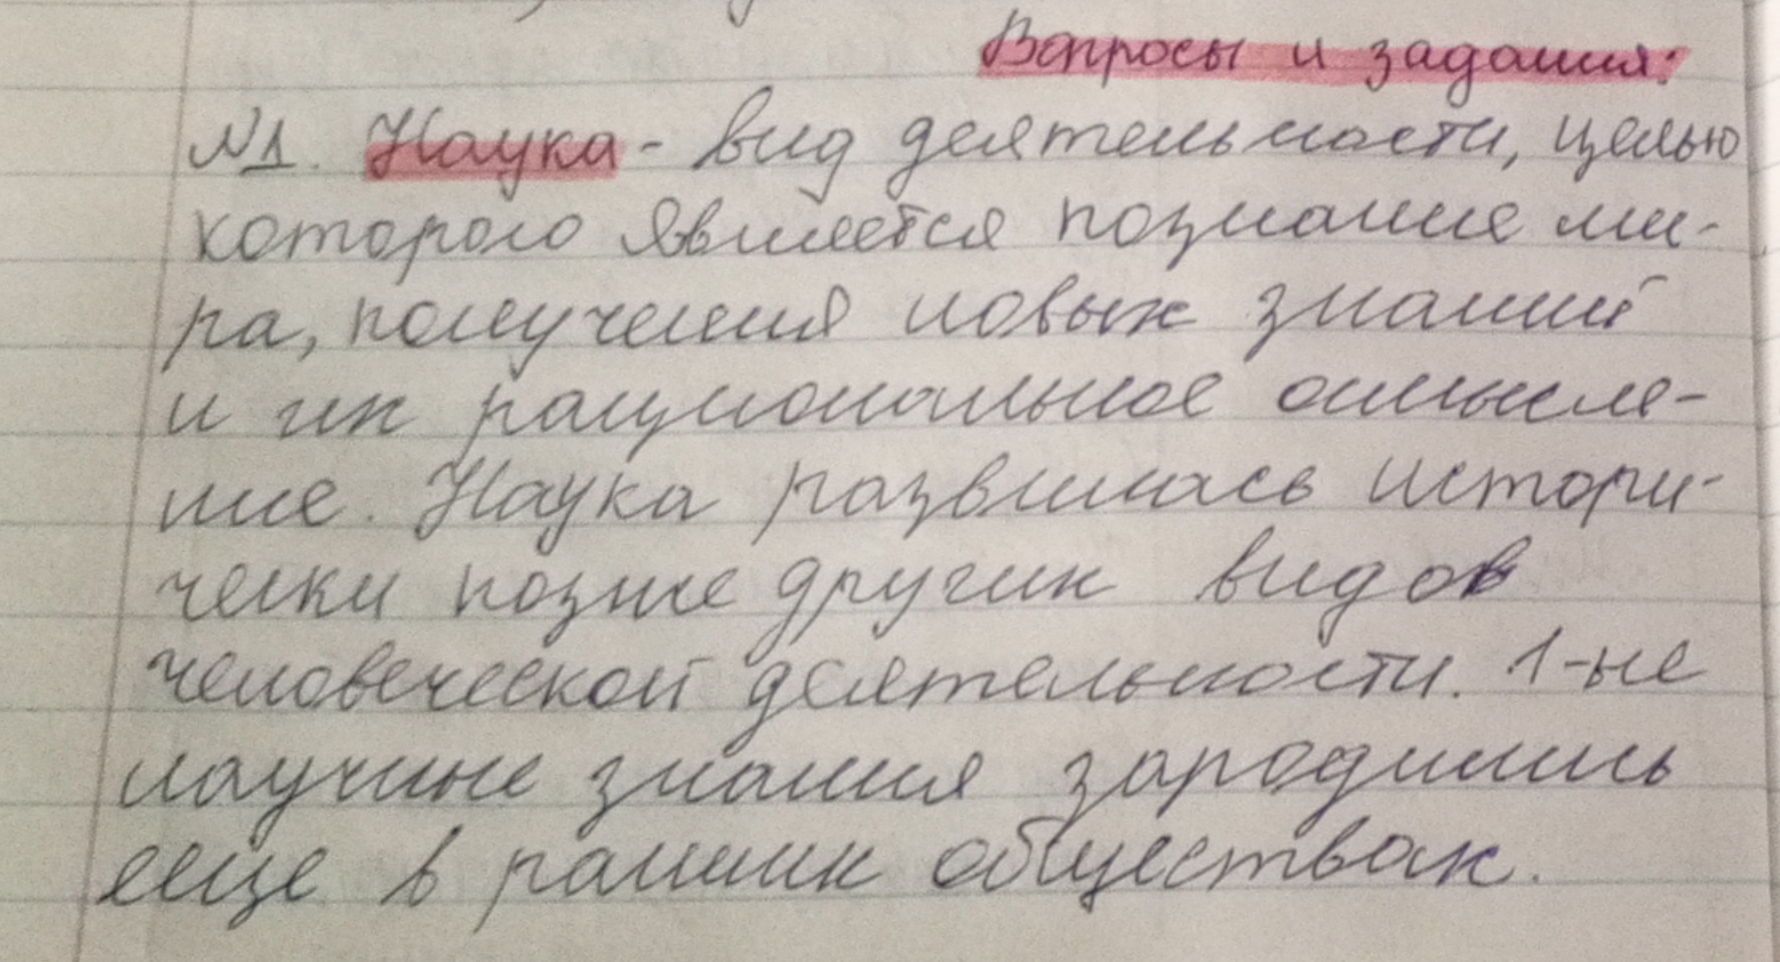 Вопросы и задания:
№1. Наука - вид деятельности, целью
которого является познание ми-
ра, получения новых знаний
и их рациональное осмысле-
ние. Наука развилась истори-
чески позже других видов
человеческой деятельности. 1-ые
научные знания зародились
еще в ранних обществах.